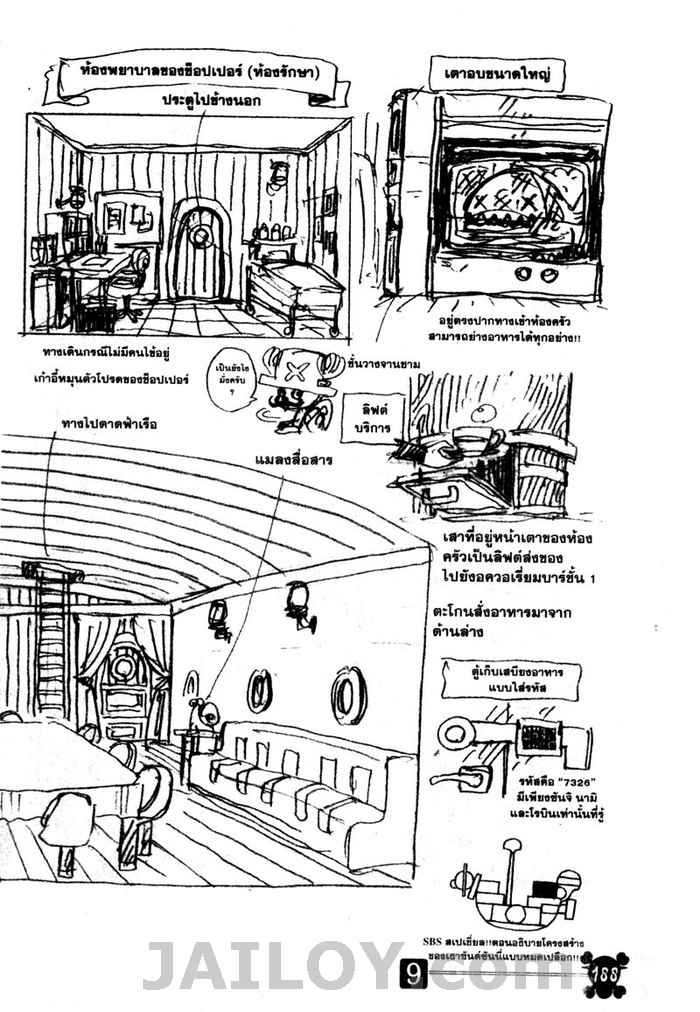 ห้องพยาบาลของช็อปเปอร์ (ห้องรักษา)
ประตูไปข้างนอก
เตาอบขนาดใหญ่
อยู่ตรงปากทางเข้าห้องครัว
สามารถย่างอาหารได้ทุกอย่าง!!
ทางเดินกรณีไม่มีคนไข้อยู่
เก้าอี้หมุนตัวโปรดของช็อปเปอร์
เป็นยังไง
มั่งครับ
?
ชั้นวางจานชาม
ลิฟต์
บริการ
ทางไปดาดฟ้าเรือ
แมลงสื่อสาร
เสาที่อยู่หน้าเตาของห้อง
ครัวเป็นลิฟต์ส่งของ
ไปยังอควอเรี่ยมบาร์ชั้น 1
ตะโกนสั่งอาหารมาจาก
ด้านล่าง
ตู้เก็บเสบียงอาหาร
แบบใส่รหัส
รหัสคือ "7326"
มีเพียงซันจิ นามิ
และโรบินเท่านั้นที่รู้
SBS สเปเชี่ยล!!ตอนอธิบายโครงสร้าง
ของเธาซันด์ซันนี่แบบหมดเปลือก!!
JAILOY.com
9
188